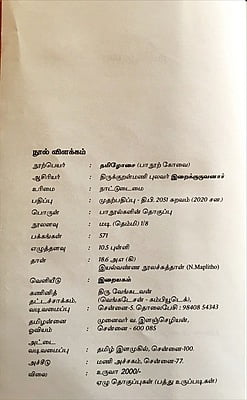 நூல் விளக்கம்
நூற்பெயர் : தமிழோசை (பாநூற் கோவை)
ஆசிரியர் : திருக்குறள்மணி புலவர் இறைக்குருவனார்
உரிமை : நாட்டுடைமை
பதிப்பு : முதற்பதிப்பு - தி.பி. 2051 சுறவம் (2020 சன.)
பொருள் : பாநூல்களின் தொகுப்பு
நூலளவு : மடி (தெம்மி) 1/8
பக்கங்கள் : 571
எழுத்தளவு : 10.5 புள்ளி
தாள் : 18.6 அ.எ (கி)
இயல்வண்ண நூலச்சுத்தாள் (N.Maplitho)
வெளியீடு : இறையகம்
கணினித் : திரு வேங்கடவன்
தட்டச்சாக்கம், (வெங்கடேசன் - கம்பியூடெக்),
வடிவமைப்பு : சென்னை-5. தொலைபேசி : 98408 54343
தமிழன்னை : முனைவர் வ. இளஞ்செழியன்,
ஓவியம் : சென்னை - 600 085
அட்டை
வடிவமைப்பு : தமிழ் இளமுகில், சென்னை-100.
அச்சீடு : மணி அச்சகம், சென்னை-77.
விலை : உருவா 2000/-
ஏழு தொகுப்புகள் (பத்து உருப்படிகள்)